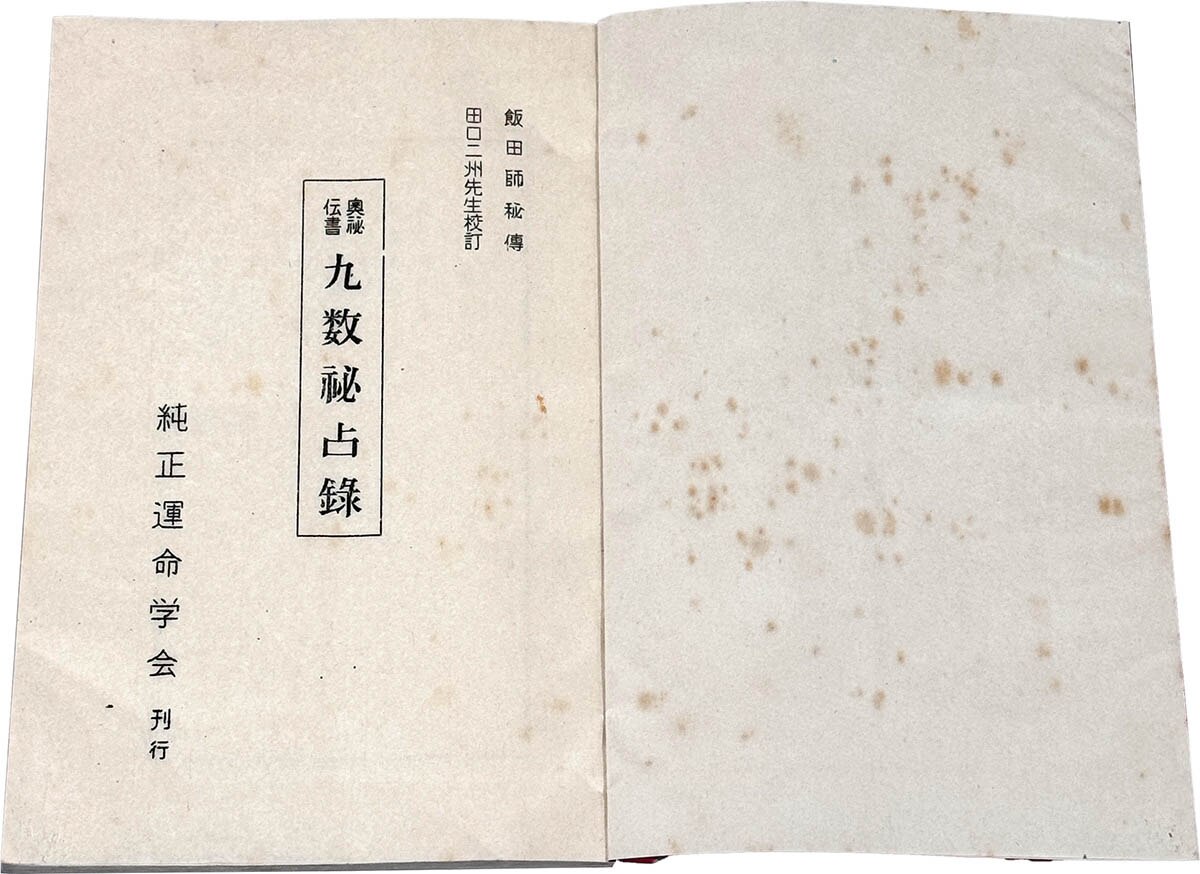 飯田師秘傳
田口二州先生校訂
奥祕
伝書
九数祕占錄
純正運命学会 刊行